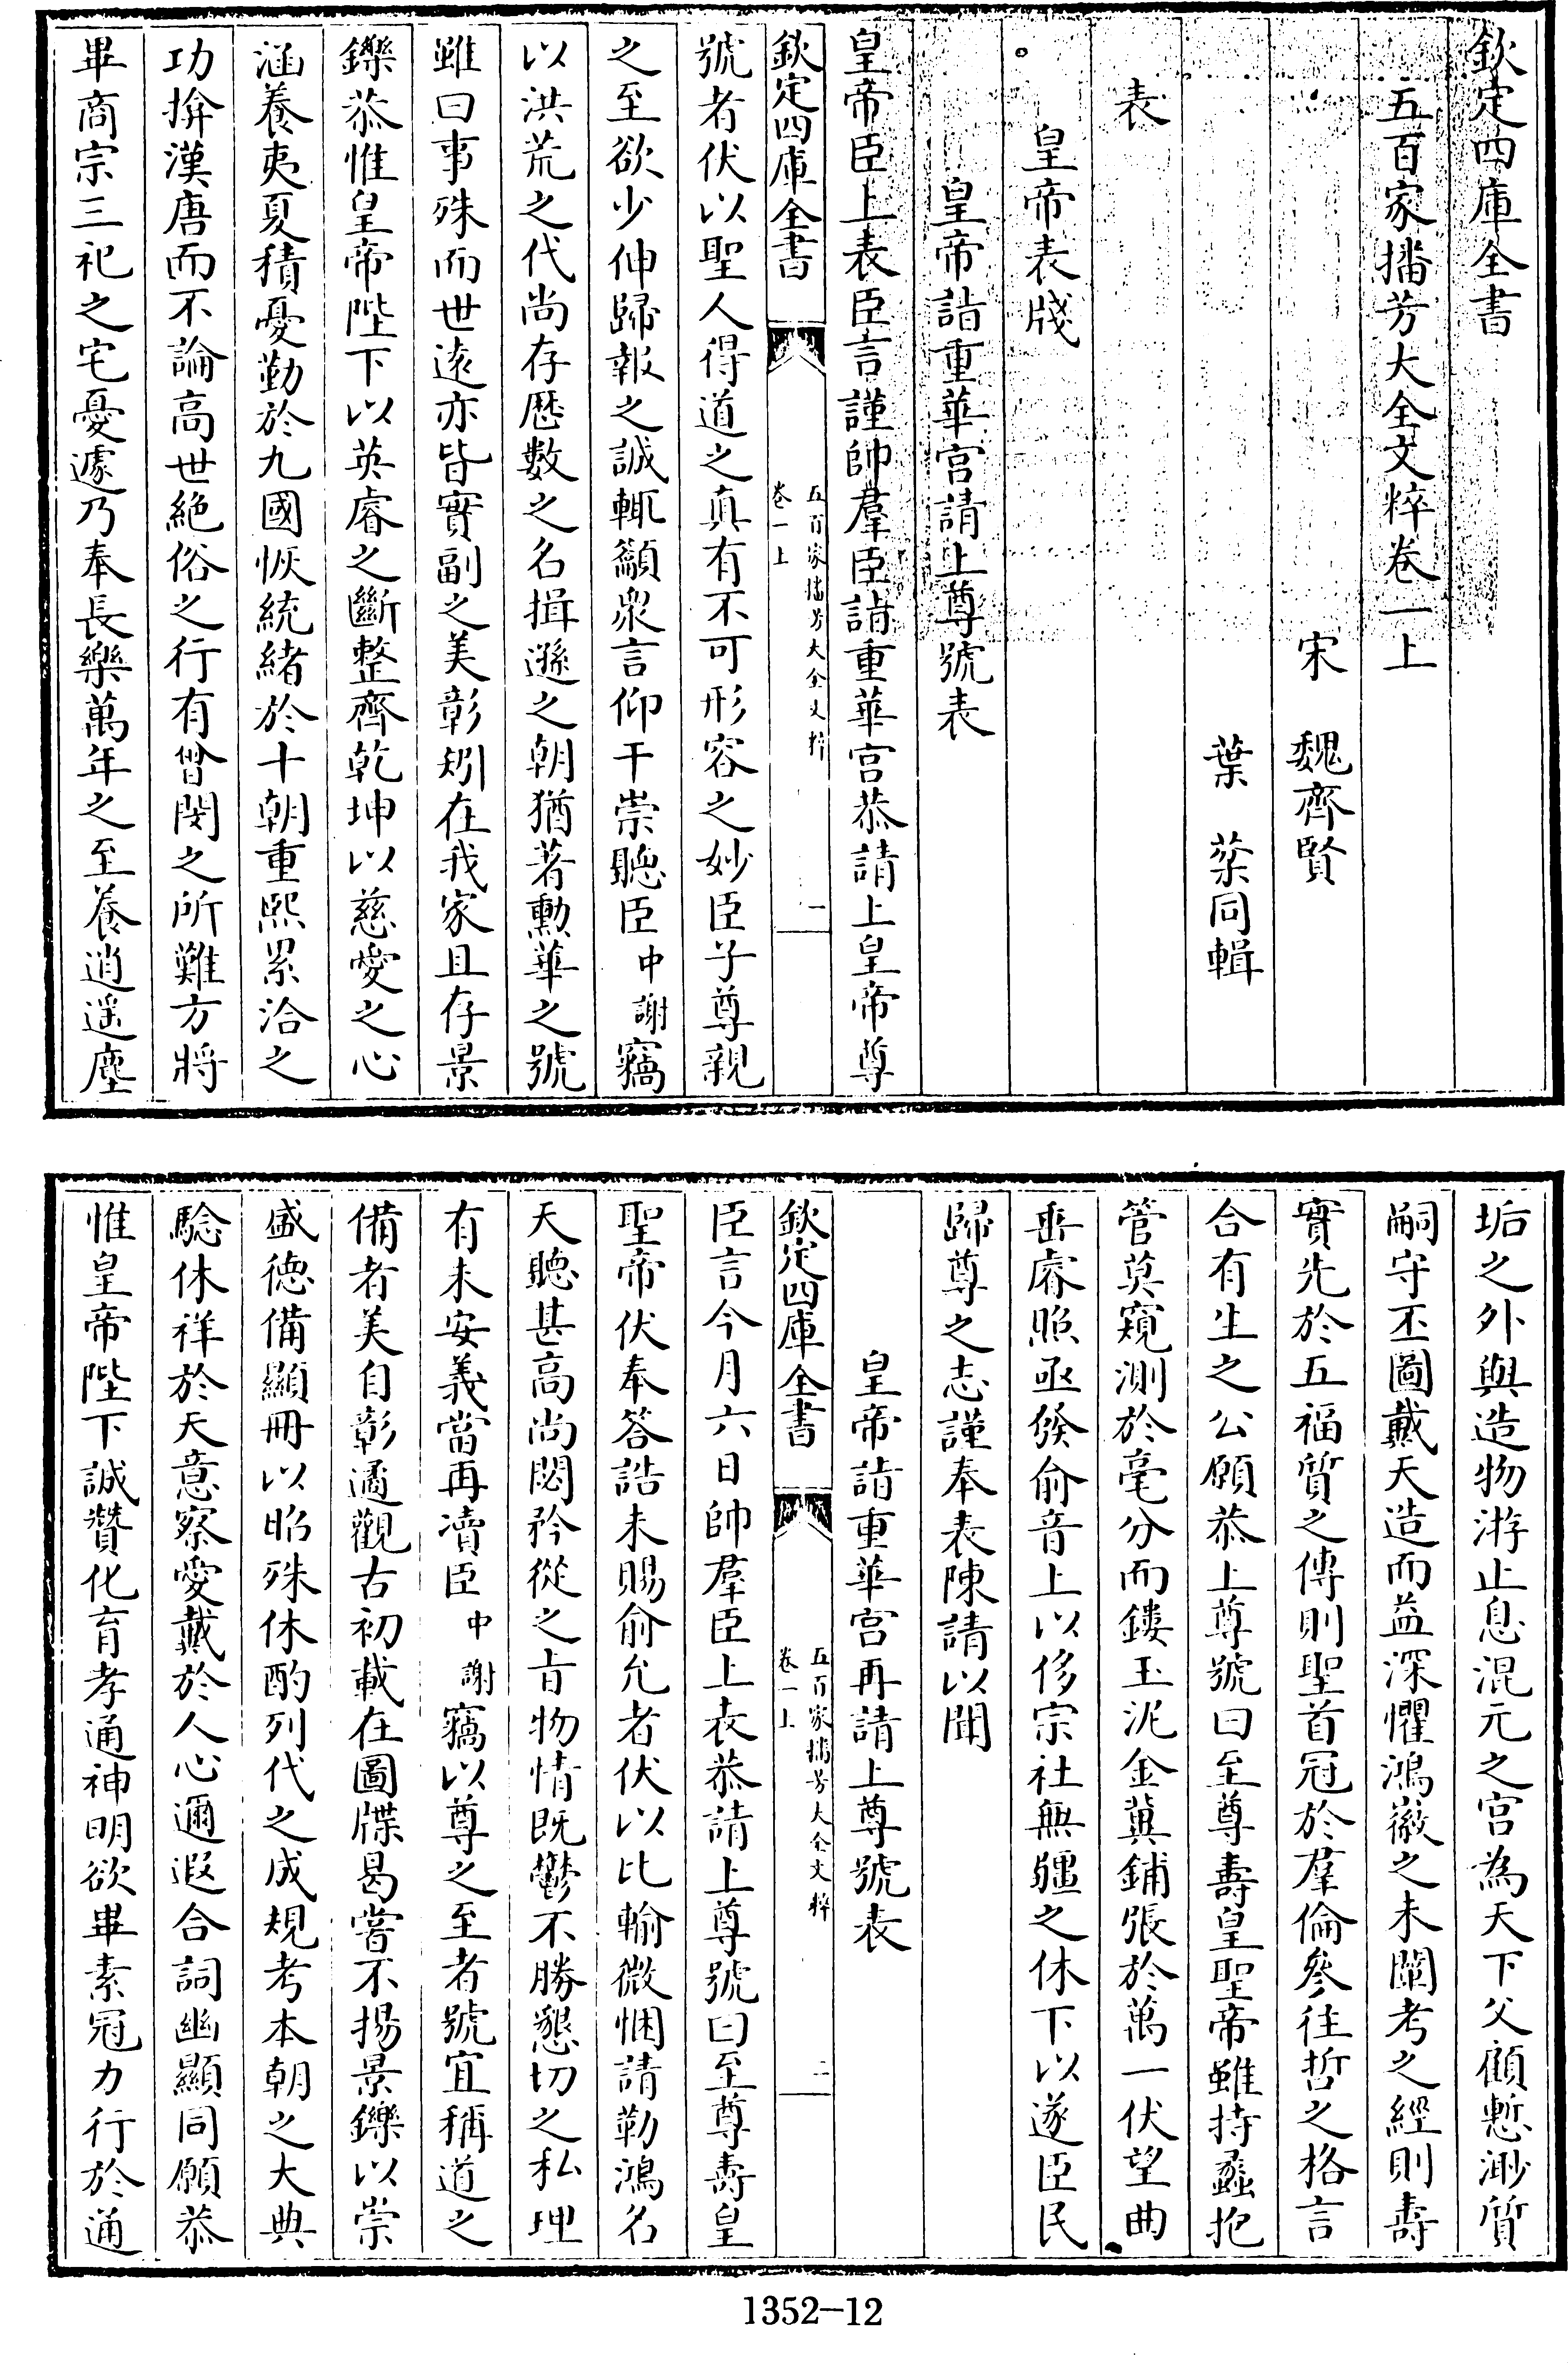 欽定四庫全書
五百家播芳大全文粹卷一上
宋　魏齊賢
葉　棻同輯
表
皇帝表牋
皇帝詣重華宮請上尊號表
皇帝臣上表臣言謹帥羣臣詣重華宮恭請上皇帝尊
欽定四庫全書
五百家播芳大全文粹
卷一上
一
號者伏以聖人得道之真有不可形容之妙臣子尊親
之至欲少伸歸報之誠輒籲衆言仰干崇聽臣中謝竊
以洪荒之代尚存歷數之名揖遜之朝猶著勲華之號
雖曰事殊而世逺亦皆實副之美彰矧在我家且存景
鑠恭惟皇帝陛下以英睿之斷整齊乾坤以慈愛之心
涵養夷夏積憂勤於九國恢統緒於十朝重熙累洽之
功揜漢唐而不論高世絶俗之行有曾閔之所難方將
畢商宗三祀之宅憂遽乃奉長樂萬年之至養逍遥塵
垢之外與造物游止息混元之宮為天下父顧慙渺質
嗣守丕圖戴天造而益深懼鴻徽之未闡考之經則壽
實先於五福質之傳則聖首冠於羣倫參往哲之格言
合有生之公願恭上尊號曰至尊壽皇聖帝雖持蠡抱
管莫窺測於毫分而鏤玉泥金冀鋪張於萬一伏望曲
垂睿照亟發俞音上以侈宗社無疆之休下以遂臣民
歸尊之志謹奉表陳請以聞
皇帝詣重華宮再請上尊號表
欽定四庫全書
五百家播芳大全文粹
卷一上
二
臣言今月六日帥羣臣上表恭請上尊號曰至尊壽皇
聖帝伏奉答誥未賜俞允者伏以比輸微悃請勒鴻名
天聽甚高尚閟矜從之肯物情既鬱不勝懇切之私理
有未安義當再瀆臣中謝竊以尊之至者號宜稱道之
備者美自彰遹觀古初載在圖牒曷嘗不揚景鑠以崇
盛德備顯冊以昭殊休酌列代之成規考本朝之大典
騐休祥於天意察愛戴於人心邇遐合詞幽顯同願恭
惟皇帝陛下誠贊化育孝通神明欲畢素冠力行於通
1352-12